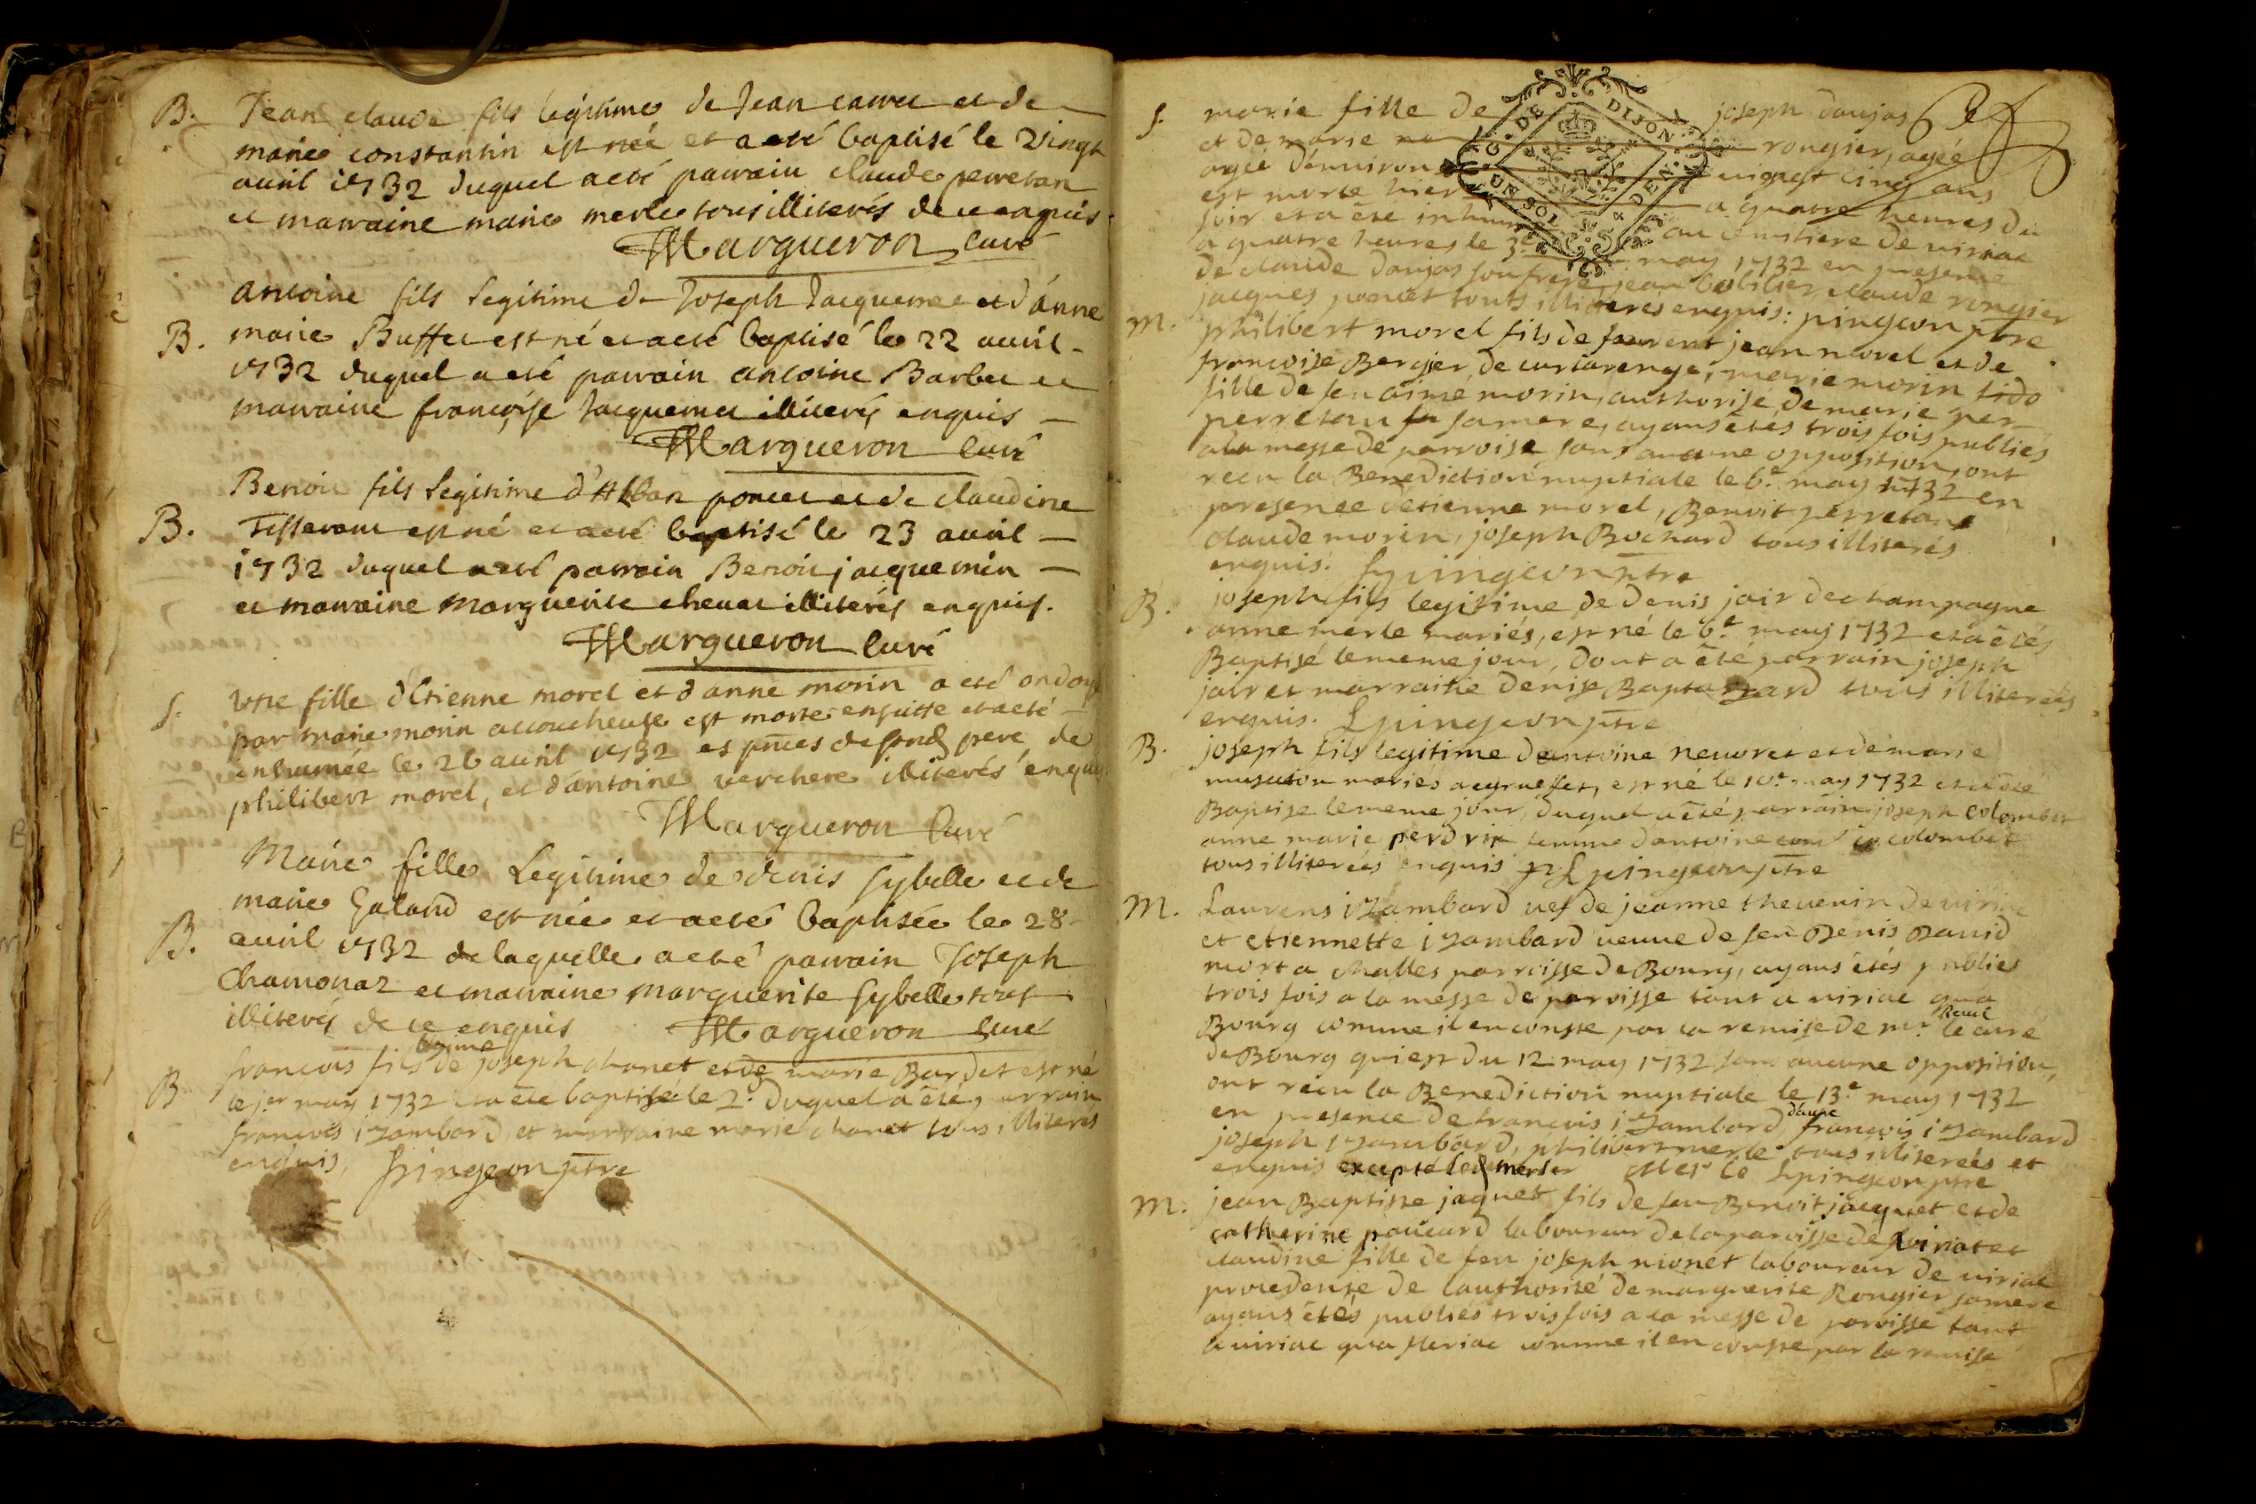 B. Jean claude fils legitime de Jean et de
marie constantin est née et a eté baptisé le vingt
avril 1732 duquel a eté parrain claude perretan
et marraine marie merle tous illiterés de ce enquis
Margueron curé
antoine fils legitime de Joseph Jacquemet et d'anne
B. marie Buffet est né et a eté baptisé le 22 avril
1732 duquel a eté parrain antoine Barbet et
marraine françoise Jacquemet illiterés enquis
Margueron curé
Benoit fils legitime d'Alban poncet et de claudine
B. Tisserant est né et a eté baptisé le 23 avril
1732 duquel a eté parrain Benoit jacquemin
et marraine marguerite illiterés enquis.
Margueron curé
S. Une fille d'Etienne morel et d'anne morin a eté ondoyé
par marie morin accoucheuse est morte ensuitte et a eté
inhumée le 26 avril 1732 es pnces pere de
philibert morel, et d'antoine verchere illiterés enquis
Margueron curé
Marie fille Legitime de denis sybelle et de
marie Galand est née et a eté baptisée le 28
B. avril 1732 de laquelle a eté parrain Joseph
Chamonaz et marraine marguerite sybelle tous
illiterés de ce enquis Margueron curé
françois fils de joseph chanet et de marie Bardet est né
B le jer may 1732 et a ete baptisé le 2e duquel a été parrain
françois izambard, et marraine marie chanet tous illiterés
enquis, pingeon ptre
S. marie fille de joseph daujas
et de marie rongier, agée
agée d'environ vignt cinq ans
est morte hier a quatre heures du
soir et a été inhumé au cimitiere de viriac
a quatre heures le 3e may 1732 en presence
de claude daujas son frere, jean claude rongier
jacques poncet touts illiterés enquis: pingeon ptre
M. philibert morel fils de jean morel et de
francoise Bergier de curtarenge, marie morin
fille de feu aimé morin, authorise de marie per
perretan sa mere, ayans étés trois fois publiés
a la messe de parroise sans aucune opposition, ont
recu la Benediction nuptiale le 6e may 1732 en
presence d'etienne morel, Benoit perretan
claude morin, joseph Bochard tous illiterés
enquis. pingeon ptre
B. joseph fils legitime de denis jair de champagne
anne merle mariés, est né le 6e may 1732 et a étés
Baptisé le meme jour, dont a été parrain joseph
jair et marraine denise tous illiterés
enquis. pingeon ptre
B. joseph fils legitime d'antoine neuoret et de marie
mariés, est né le 10e may 1732 et a été
Baptise le meme jour, duquel a été parrain joseph colombet
anne marie perdrix femme d'antoine colombet
tous illiterés enquis pingeon ptre
M. Laurens izambard vef de jeanne thevenin de viriac
et etiennette izambard veuve de feu Denis David
mort a challes parroisse de Bourg, ayans étés publiés
trois fois a la messe de paroisse tant a viriac qu'a
Bourg comme il en conste par la remise de mr le curé
de Bourg qui est du 12 may 1732 sans aucune opposition,
ont recu la Benediction nuptiale le 13e may 1732
en presence de francois izambard, françois izambard
joseph izambard, philibert merle tous illiterés et
enquis excepté led merle pingeon ptre
M. jean Baptiste jaquet fils de feu Benoit jacquet et de
catherine laboureur de la paroisse de et
claudine fille de feu joseph nionet laboureur de viriac
procedente de l'authorité de marguerite Rongier sa mere
ayans étés publiés trois fois a la messe de paroisse tant
a viriac qu'a fleriac comme il en conste par la remise